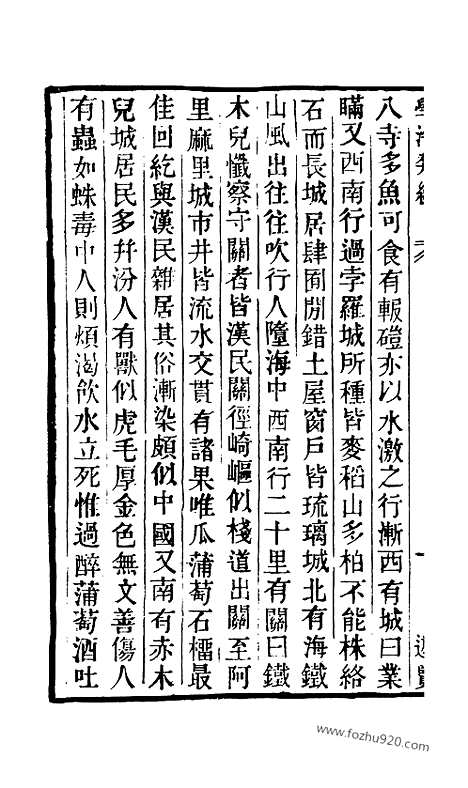 八寺多魚可食有輾磑亦以水激之行漸西有城曰業
瞞又西南行過孛羅城所種皆麥稻山多柏不能株絡
石而長城居肆囿閒錯土屋窗戶皆琉璃城北有海鐵
山風出往往吹行人墮海中西南行二十里有關曰鐵
木兒懺察守關者皆漢民關徑崎嶇似棧道出關至阿
里麻里城市井皆流水交貫有諸果唯瓜蒲萄石橊最
佳回紇與漢民雜居其俗漸染頗似中國又南有赤木
兒城居民多幷汾人有獸似虎毛厚金色無文善傷人
有蟲如蛛毒中人則煩渴飮水立死惟過醉蒲萄酒吐
www.fozhu920.com